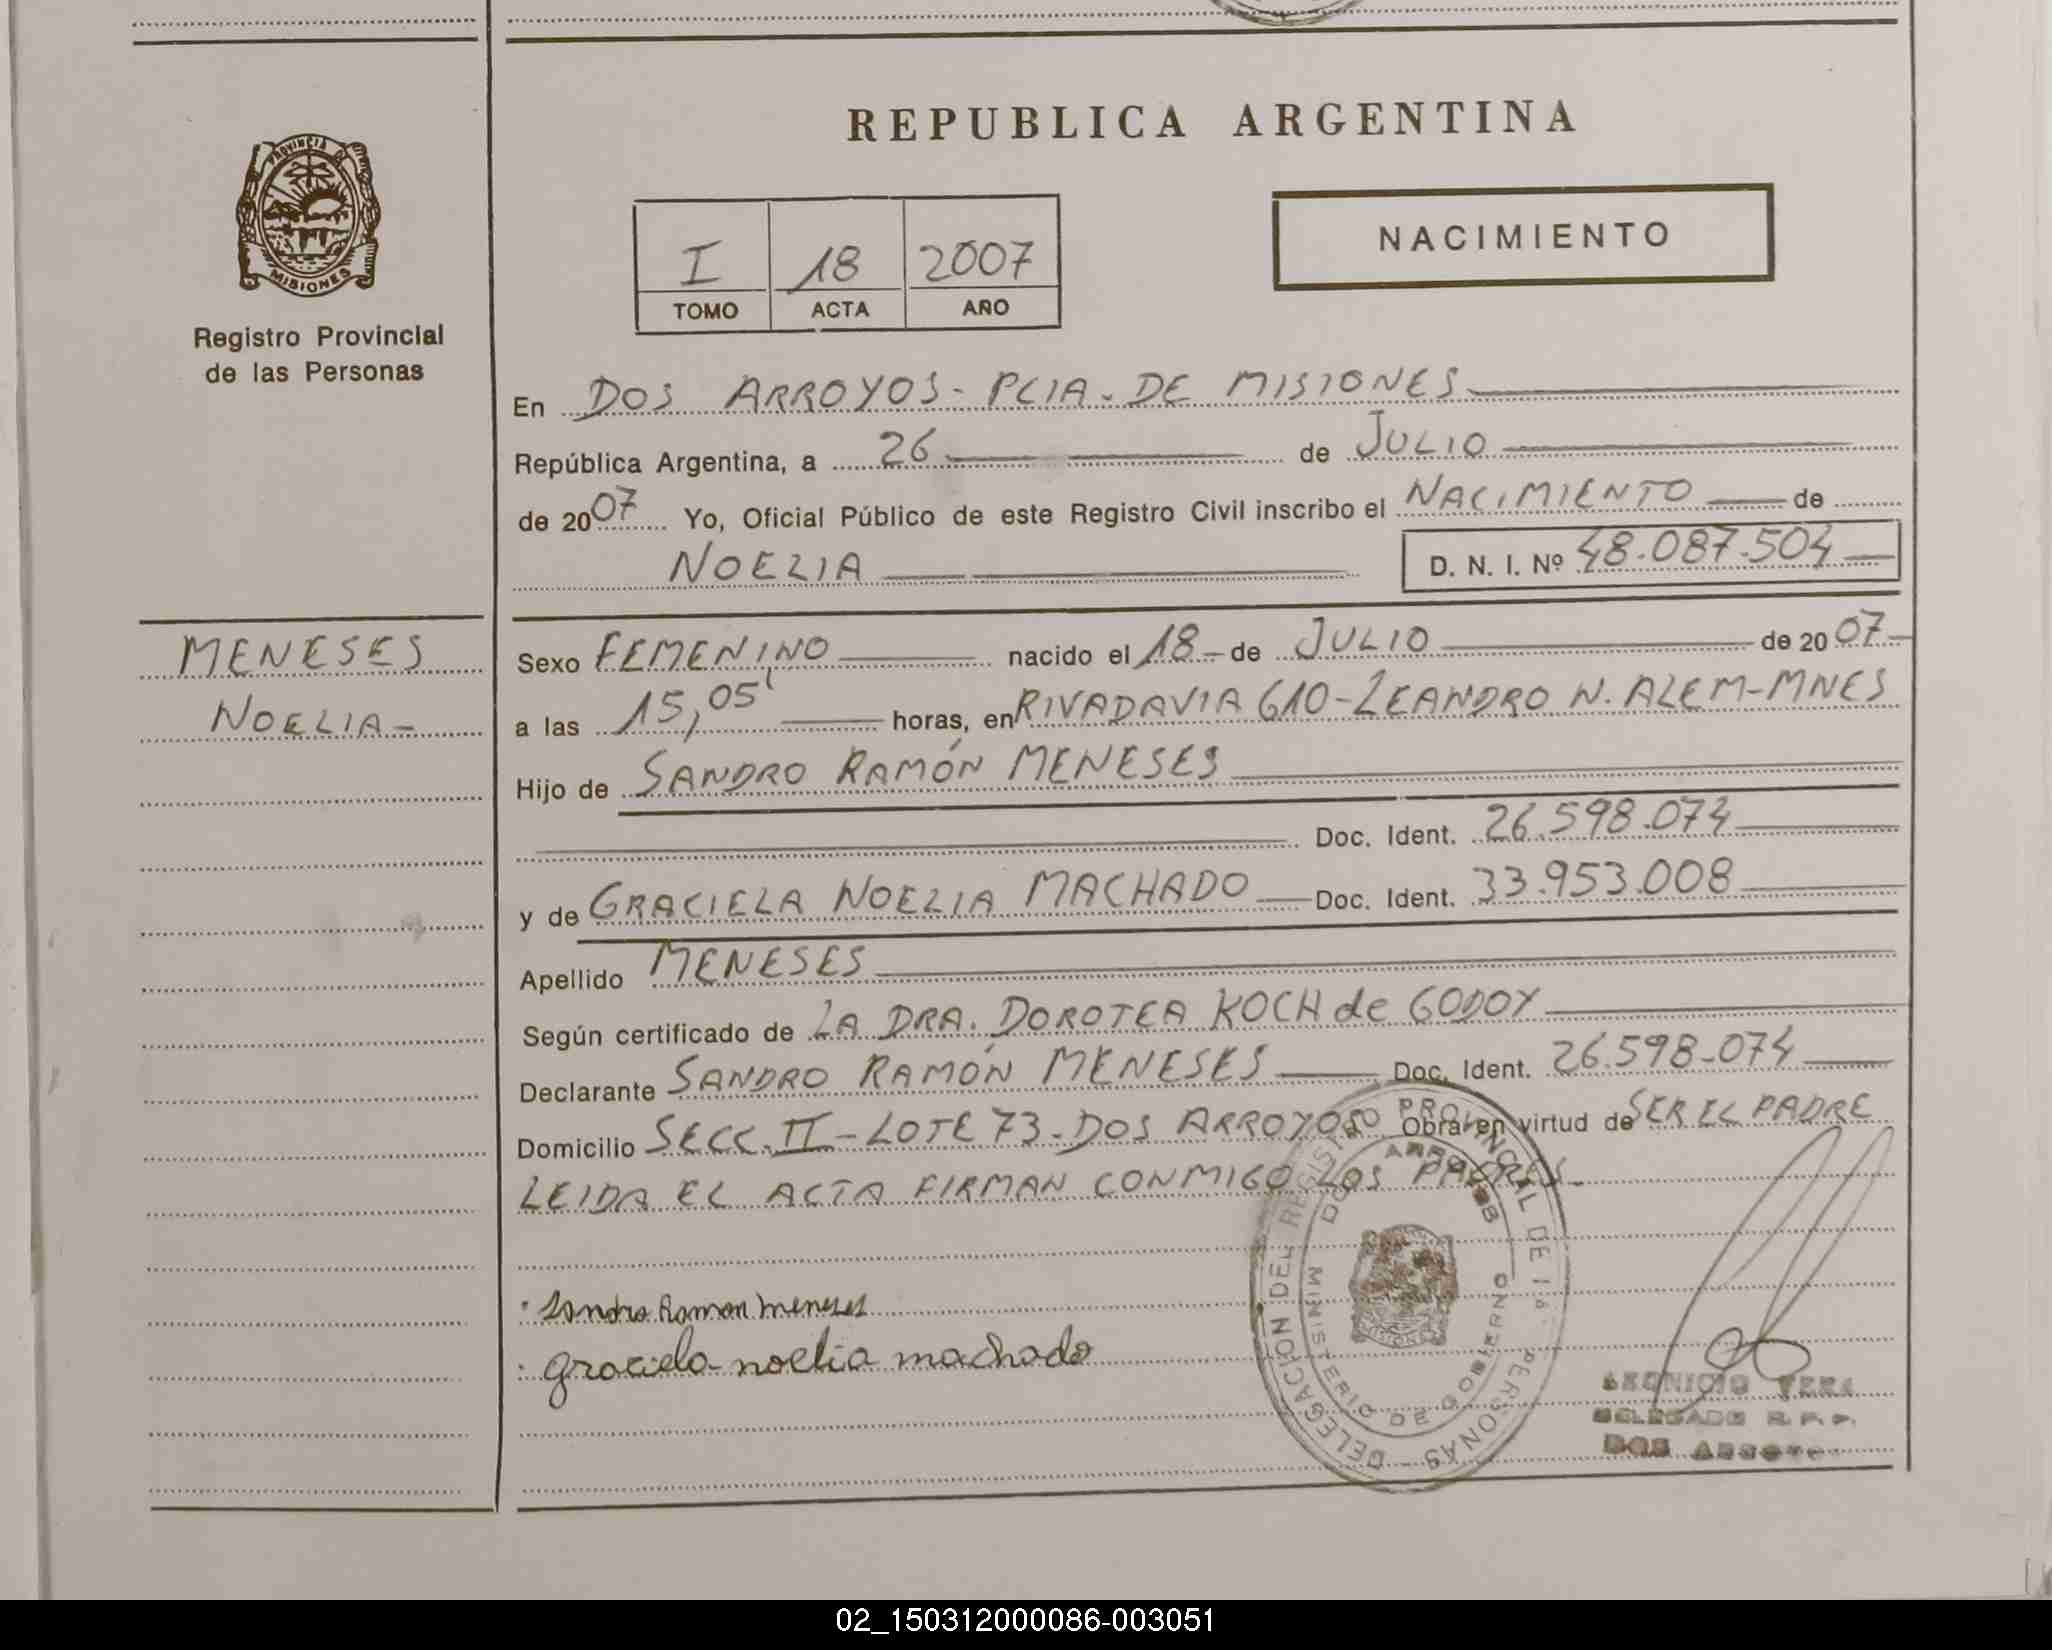 REPUBLICA ARGENTINA
PROVINCIA DE
MISIONES
Registro Provincial
de las Personas
I 18 2007
TOMO ACTA AÑO
NACIMIENTO
En DOS ARROYOS - PCIA. DE MISIONES
República Argentina, a 26 de JULIO
de 2007 Yo, Oficial Público de este Registro Civil inscribo el NACIMIENTO de
NOELIA D. N. I. Nº 48.087.504
MENESES
NOELIA-
Sexo FEMENINO nacido el 18 de JULIO de 2007
a las 15,05' horas, en RIVADAVIA 610-LEANDRO N. ALEM-MNES
Hijo de SANDRO RAMÓN MENESES
Doc. Ident. 26.598.074
y de GRACIELA NOELIA MACHADO Doc. Ident. 33.953.008
Apellido MENESES
Según certificado de LA DRA. DOROTEA KOCH de GODOY
Declarante SANDRO RAMÓN MENESES Doc. Ident. 26.598.074
Domicilio SECC. II - LOTE 73 - DOS ARROYOS Obra en virtud de SER EL PADRE
LEIDA EL ACTA FIRMAN CONMIGO LOS PADRES.
Sandro Ramon meneses
graciela noelia machado
DELEGACION DEL REGISTRO PROVINCIAL DE LAS PERSONAS
DOS ARROYOS
MINISTERIO DE GOBIERNO
MISIONES
VERA
DELEGADO R. P. P.
DOS ARROYOS
02_150312000086-003051